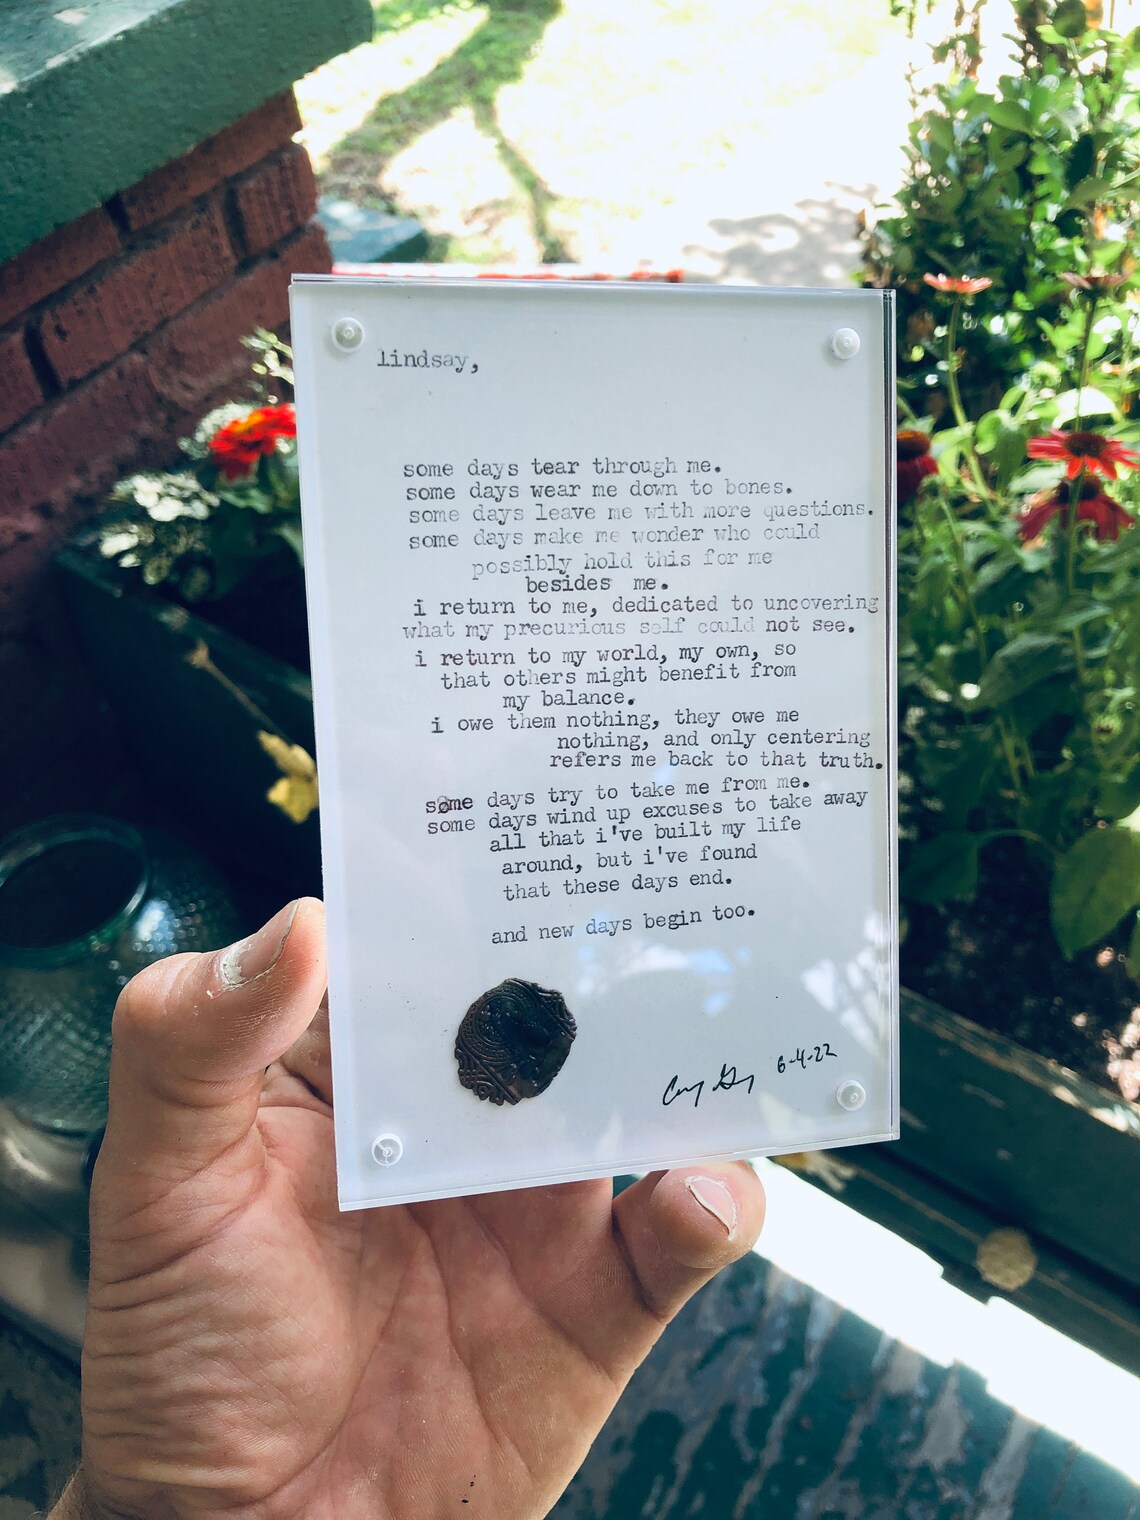 lindsay,
some days tear through me.
some days wear me down to bones.
some days leave me with more questions.
some days make me wonder who could
possibly hold this for me
besides me.
i return to me, dedicated to uncovering
what my precurious self could not see.
i return to my world, my own, so
that others might benefit from
my balance.
i owe them nothing, they owe me
nothing, and only centering
refers me back to that truth.
some days try to take me from me.
some days wind up excuses to take away
all that i've built my life
around, but i've found
that these days end.
and new days begin too.
6-4-22